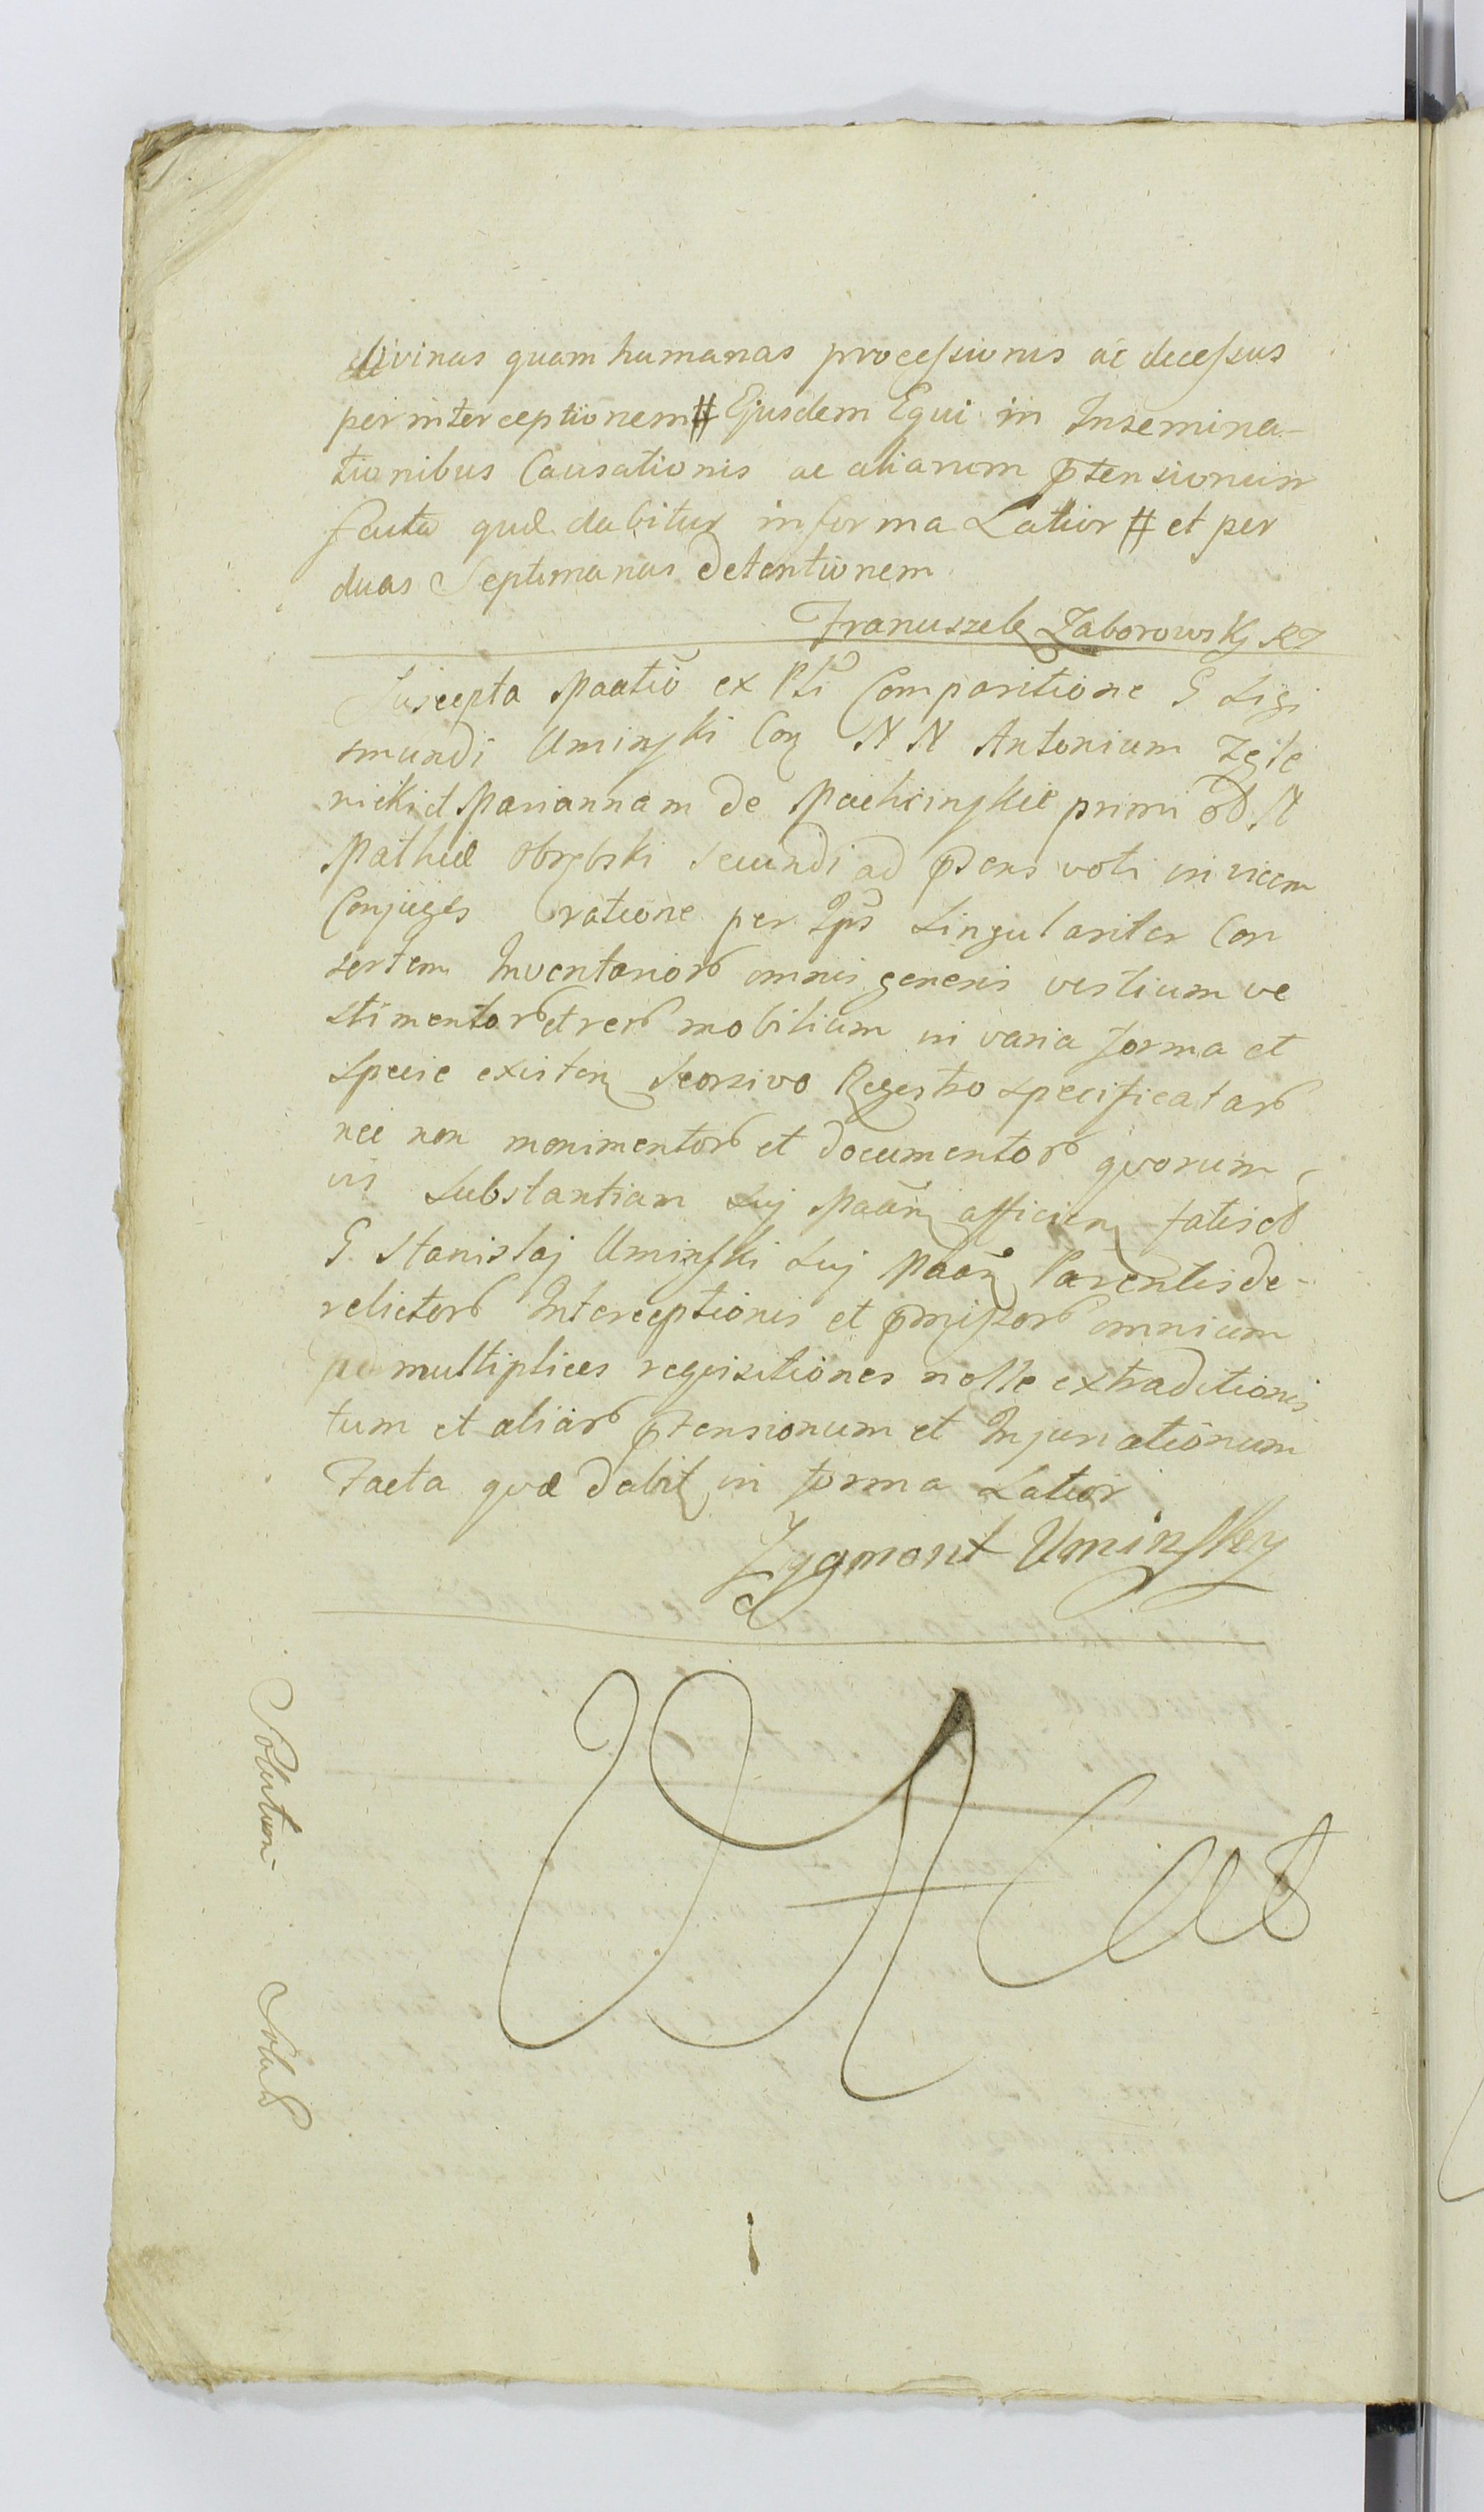 divinas quam humanas processionis ac decessus
per interceptionem # Ejusdem Equi in Insemina-
tionibus Causationis ac aliarum ptensionum
facta quæ dabitur in forma Latior # et per
duas Septimanas detentionem
Franuszek Zaborowsky
Suscepta Maatio ex Pti Comparitione G Sigi
smundi Uminski Con N N Antonium Zgle
nicki et Mariannam de
Mathiæ Obrębski secundi ad psens voti invicem
Conjuges ratione per Ips Singulariter Con
sortem Inventarior omnis generis vestium ve
stimentor et rer mobilium in varia forma et
Specie existen Seorsivo Regestro specificatar
nec non monimentor et documentor quorum
vis Substantiam Suj Maan afficien fatis ol
G. Stanislaj Uminski Suj Maan Parentis de-
relictor Interceptionis et pmissor omnium
ad multiplices requisitiones nolle extraditionis
tum et aliar ptensionum et Injuriationum
Facta quæ dabit in forma Latior
Zygmont Uminsky
Solutum